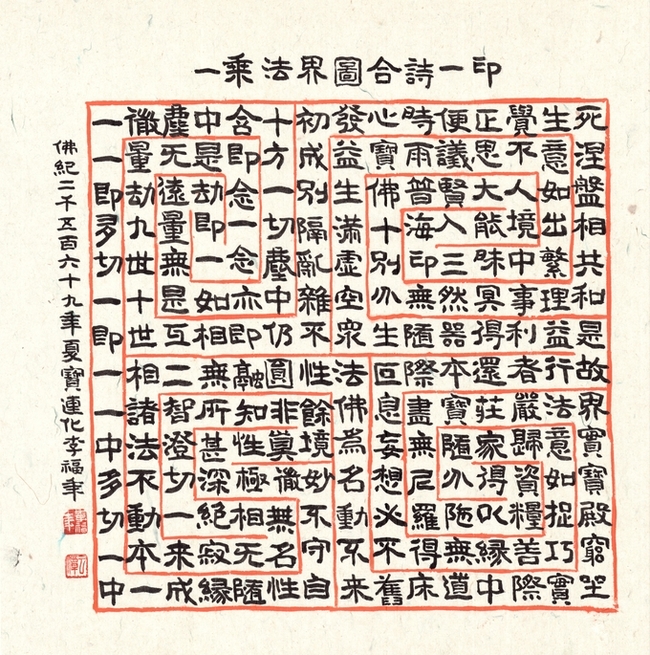 一乘法界圖合詩一印
一微塵中含十初發心時便正覺生死
一量无是即方成益寶雨議思不意涅
即劫遠劫念一別生佛普賢大人如盤
多九量即一切隔滿十海入能境出相
切世無一念塵亂虛別印三昧中繁共
一十是如亦中雜空分無然冥事理和
即世互相即仍不衆生隨器得利益是
一相二無融圓性法叵際本還者行故
一諸智所知非餘佛息盡寶莊嚴法界
中法澄甚性眞境爲妄無隨家歸意實
多不切深極微妙名想尼分得資如寶
切動一絶相無不動必羅陀以糧捉殿
一本來寂无名守不不得無緣善巧窮
中一成緣隨性自來舊床道中際實坐
佛紀二千五百六十九年夏寶蓮化李福年